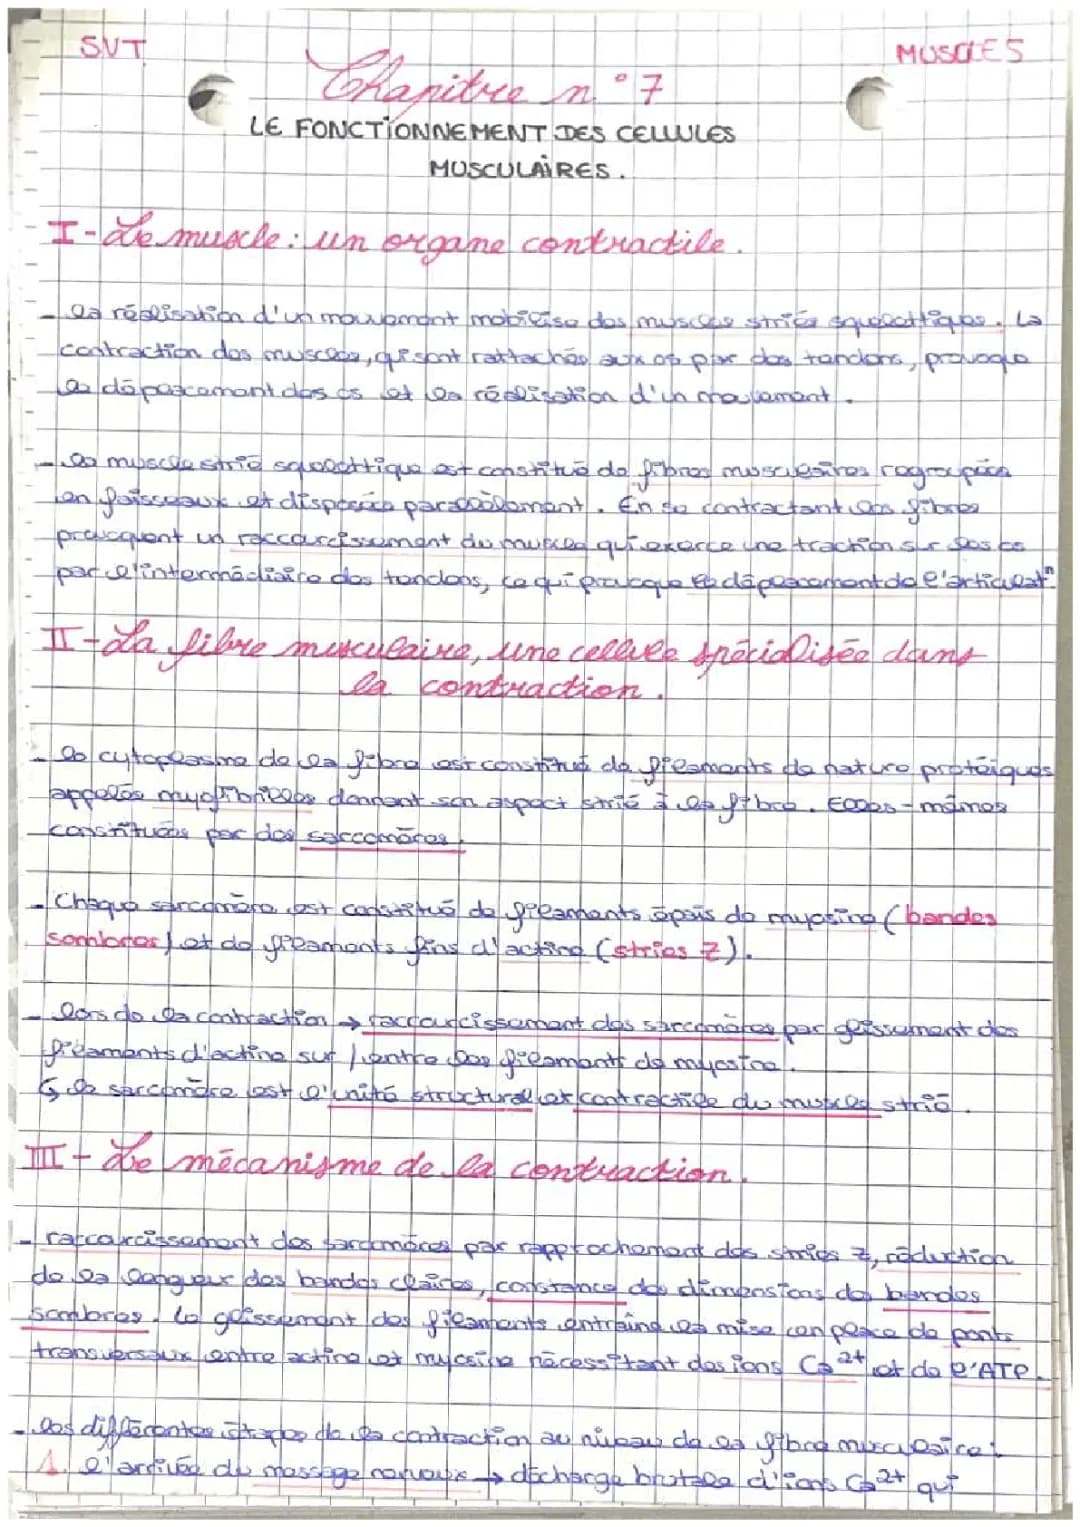 SVT
MUSCLES
Chapitre n°7
LE FONCTIONNEMENT DES CELLULES
MUSCULAIRES.
I - Le muscle : un organe contractile.
- la réalisation d'un mouvement mobilise des muscles striés squelettiques. La
contraction des muscles, qui sont rattachés aux os par des tendons, provoque
le déplacement des os et la réalisation d'un mouvement.
- le muscle strié squelettique est constitué de fibres musculaires regroupées
en faisceaux et disposées parallèlement. En se contractant les fibres
provoquent un raccourcissement du muscle qui exerce une traction sur les os
par l'intermédiaire des tendons, ce qui provoque le déplacement de l'articulat°.
II - La fibre musculaire, une cellule spécialisée dans
la contraction.
- le cytoplasme de la fibre est constitué de filaments de nature protéiques
appelés myofibrilles donnant son aspect strié à la fibre. Elles-mêmes
constituées par des sarcomères.
- Chaque sarcomère est constitué de filaments épais de myosine (bandes
sombres) et de filaments fins d'actine (stries Z).
- lors de la contraction → raccourcissement des sarcomères par glissement des
filaments d'actine sur / entre les filaments de myosine.
↳ le sarcomère est l'unité structural et contractile du muscle strié.
III - Le mécanisme de la contraction.
- raccourcissement des sarcomères par rapprochement des stries Z, réduction
de la longueur des bandes claires, constance des dimensions de bandes
sombres. Le glissement des filaments entraîne la mise en place de ponts
transversaux entre actine et myosine nécessitant des ions Ca²⁺ et de l'ATP.
- les différentes étapes de la contraction au niveau de la fibre musculaire :
1. l'arrivée du message nerveux → décharge brutale d'ions Ca²⁺ qui